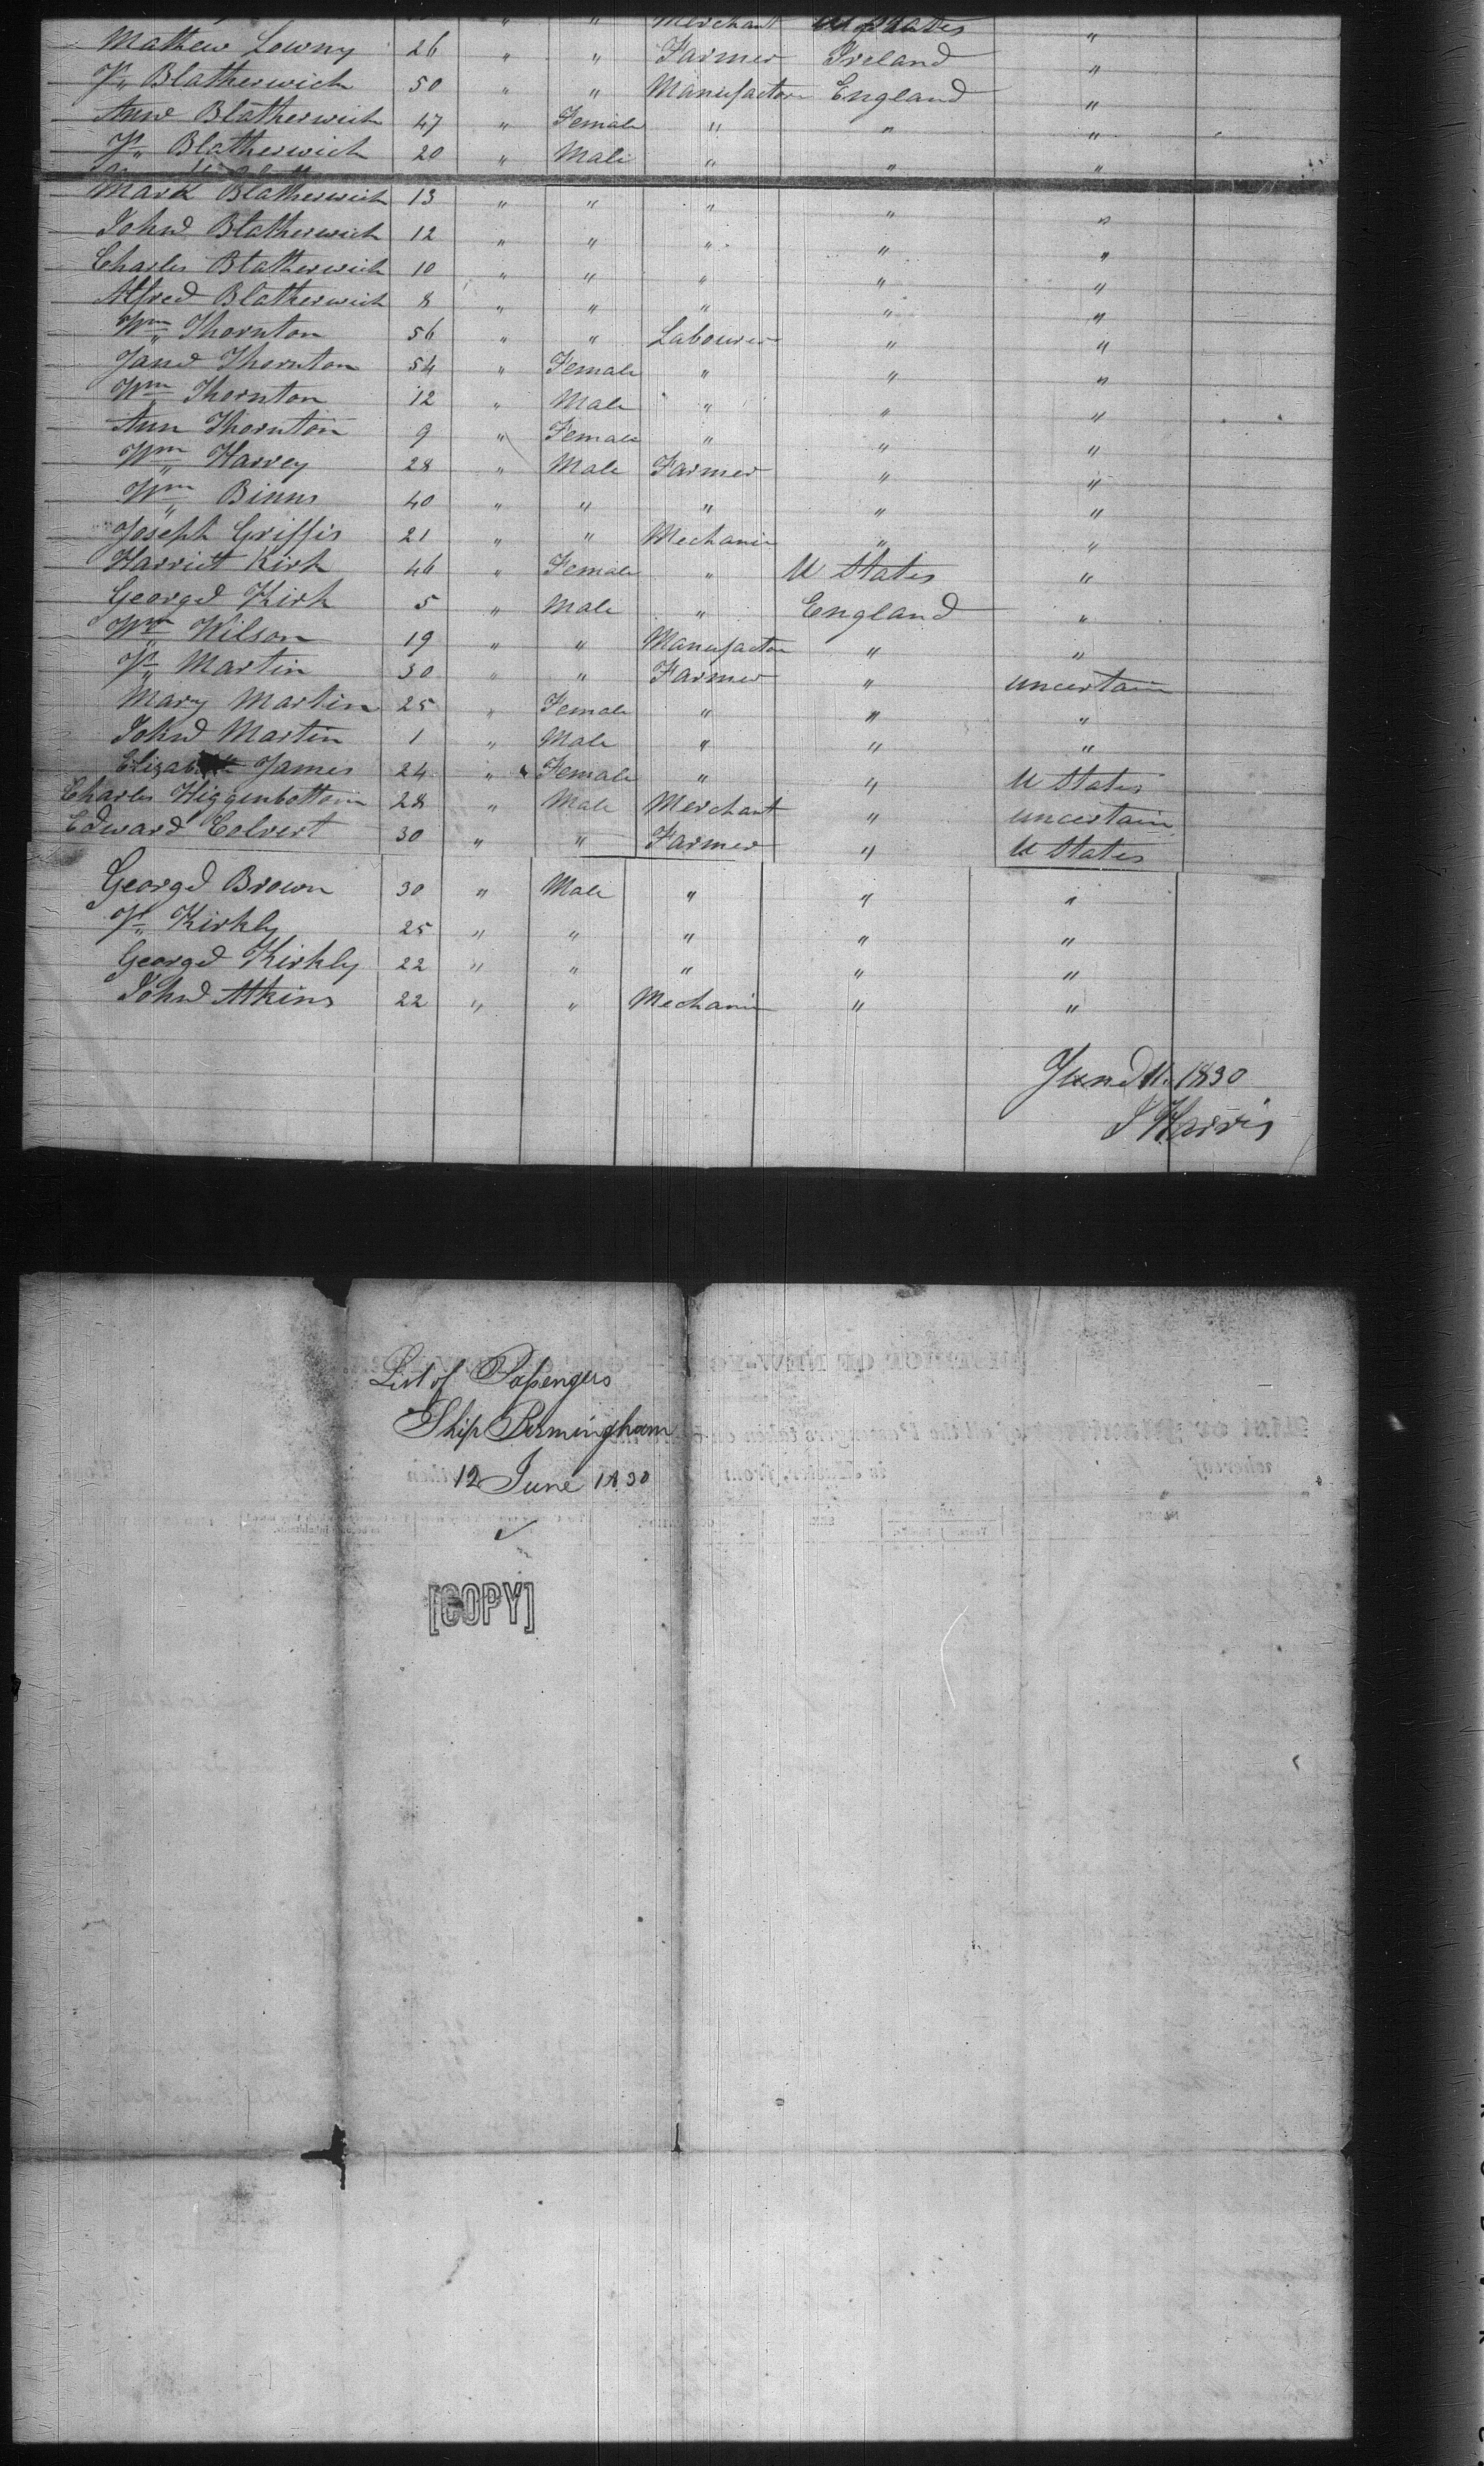 Merchant U States "
Mathew Lowny 26 " " Farmer Ireland "
Js Blatherwich 50 " " Manufactor England "
Anne Blatherwich 47 " Female " " "
Js Blatherwich 20 " Male " " "
Mark Blatherwich 13 " " " " "
John Blatherwich 12 " " " " "
Charles Blatherwich 10 " " " " "
Alfred Blatherwich 8 " " " " "
Wm Thornton 56 " " Labourer " "
Jane Thornton 54 " Female " " "
Wm Thornton 12 " Male " " "
Ann Thornton 9 " Female " " "
Wm Harvey 28 " Male Farmer " "
Wm Binns 40 " " " " "
Joseph Griffis 21 " " Mechanic " "
Harriet Kirk 46 " Female " U States "
George Kirk 5 " Male " England "
Wm Wilson 19 " " Manufactor " "
Js Martin 30 " " Farmer " uncertain
Mary Martin 25 " Female " " "
John Martin 1 " Male " " "
James 24 " Female " " U States
Charles Higgenbottom 28 " Male Merchant " uncertain
Edward Colvert 30 " " Farmer " U States
George Brown 30 " Male " " "
Js Kirkly 25 " " " " "
George Kirkly 22 " " " " "
John Atkins 22 " " Mechanic " "
June 11. 1830
J Harris
List of Passengers
Ship Birmingham
12 June 1830
[COPY]